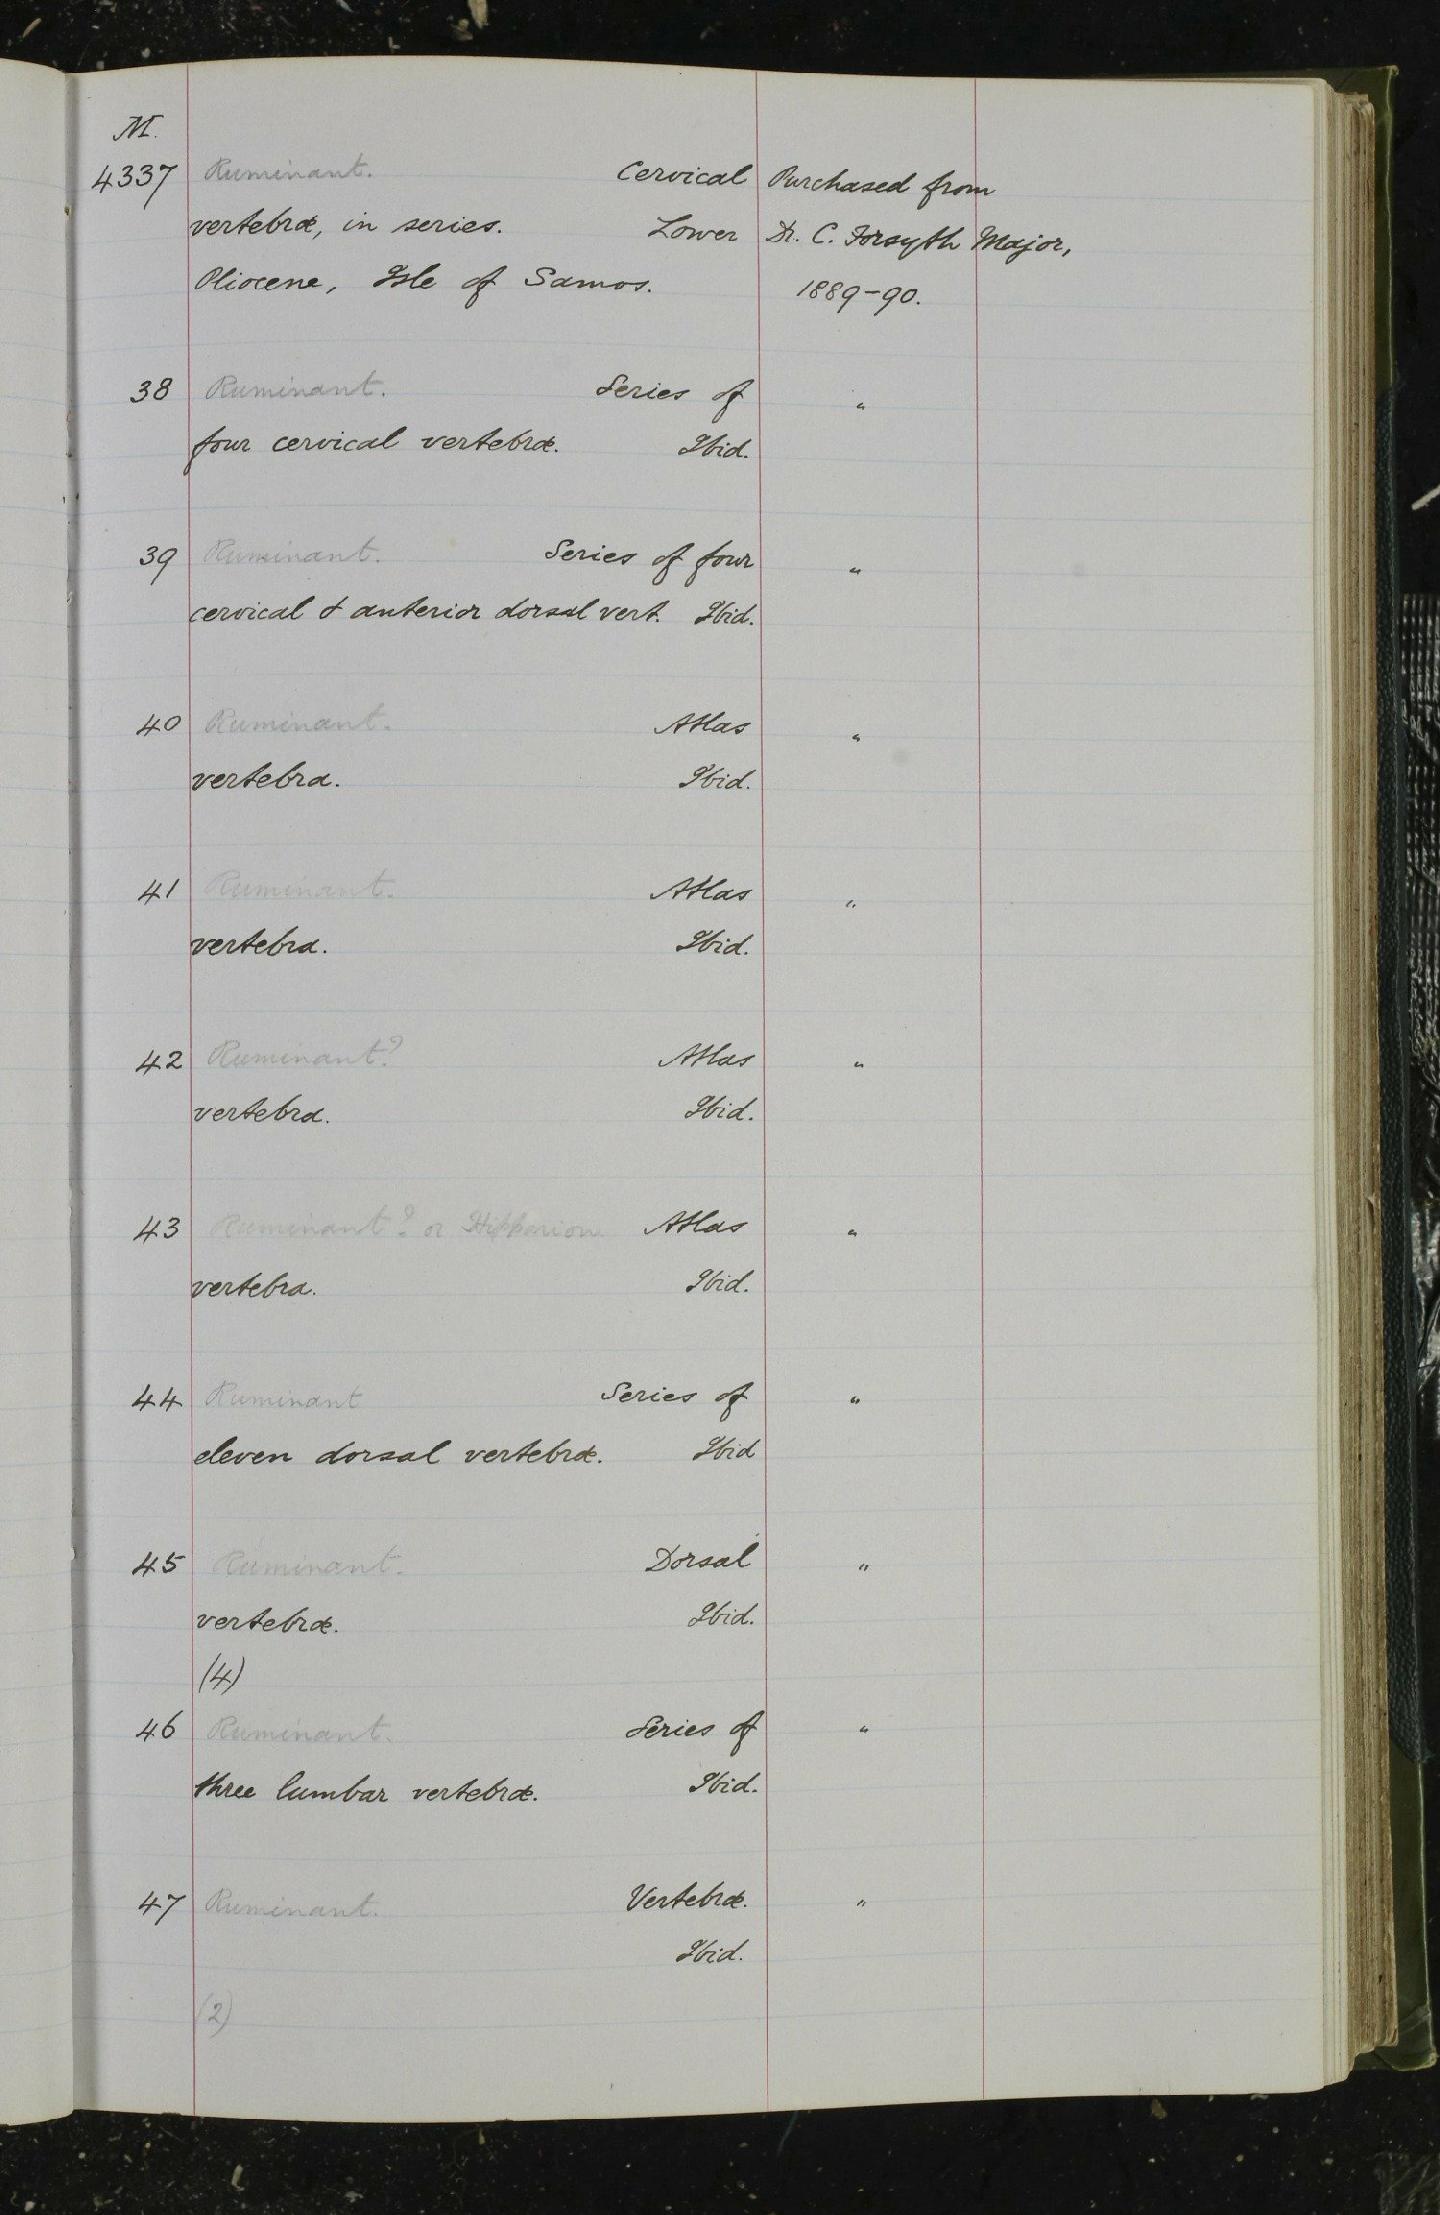 M.
4337 Ruminant. Cervical Purchased from
vertebræ, in series. Lower Dr. C. Forsyth Major,
Pliocene, Isle of Samos. 1889-90.
38 Ruminant. Series of "
four cervical vertebræ. Ibid.
39 Ruminant. Series of four "
cervical & anterior dorsal vert. Ibid.
40 Ruminant. Atlas "
vertebra. Ibid.
41 Ruminant. Atlas "
vertebra. Ibid.
42 Ruminant? Atlas "
vertebra. Ibid.
43 Ruminant? or Hipparion Atlas "
vertebra. Ibid.
44 Ruminant Series of "
eleven dorsal vertebræ. Ibid
45 Ruminant. Dorsal "
vertebræ. Ibid.
(4)
46 Ruminant. Series of "
three lumbar vertebræ. Ibid.
47 Ruminant. Vertebræ. "
Ibid.
(2)